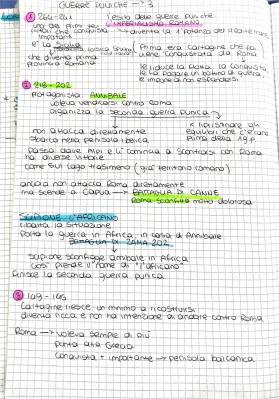 GUERRE PUNICHE - 3
① 264-241
l'esito delle guerre puniche
uno dei primi
IMPERIALISMO ROMANO
che conquista
importanti
diventa la 1° potenza del Mediterraneo
è la Sicilia
che diventa prima
provincia romana
Prima era cartagine che fa
viene conquistata da Roma
le riduce la flotta, la conquista
le fa pagare un bottino di guerra
e impone di non espandersi
② 218-202
protagonista: ANNIBALE
voleva vendicarsi contro Roma
organizza la seconda guerra punica
x ripristinare gli
equilibri che c'erano
prima della 1° g.p
non attacca direttamente
sbarca nella penisola iberica
passa dalle Alpi e lì comincia a scontrarsi con Roma
ha diverse vittorie
come sul lago trasimeno (già territorio romano)
ancora non attacca Roma direttamente
ma scende a Capua → BATTAGLIA DI CANNE
Roma sconfitta molto dolorosa
SCIPIONE L'AFRICANO
ribalta la situazione
Porta la guerra in Africa, in casa di Annibale
BATTAGLIA DI ZAMA 202
scipione sconfigge annibale in Africa
così prende il nome di "l'africano"
finisce la seconda guerra punica
③ 149-146
Cartagine riesce un minimo a ricostruirsi
diventa ricca e non ha intenzione di andare contro Roma
Roma → voleva sempre di più
punta alla Grecia
conquista + importante → penisola balcanica